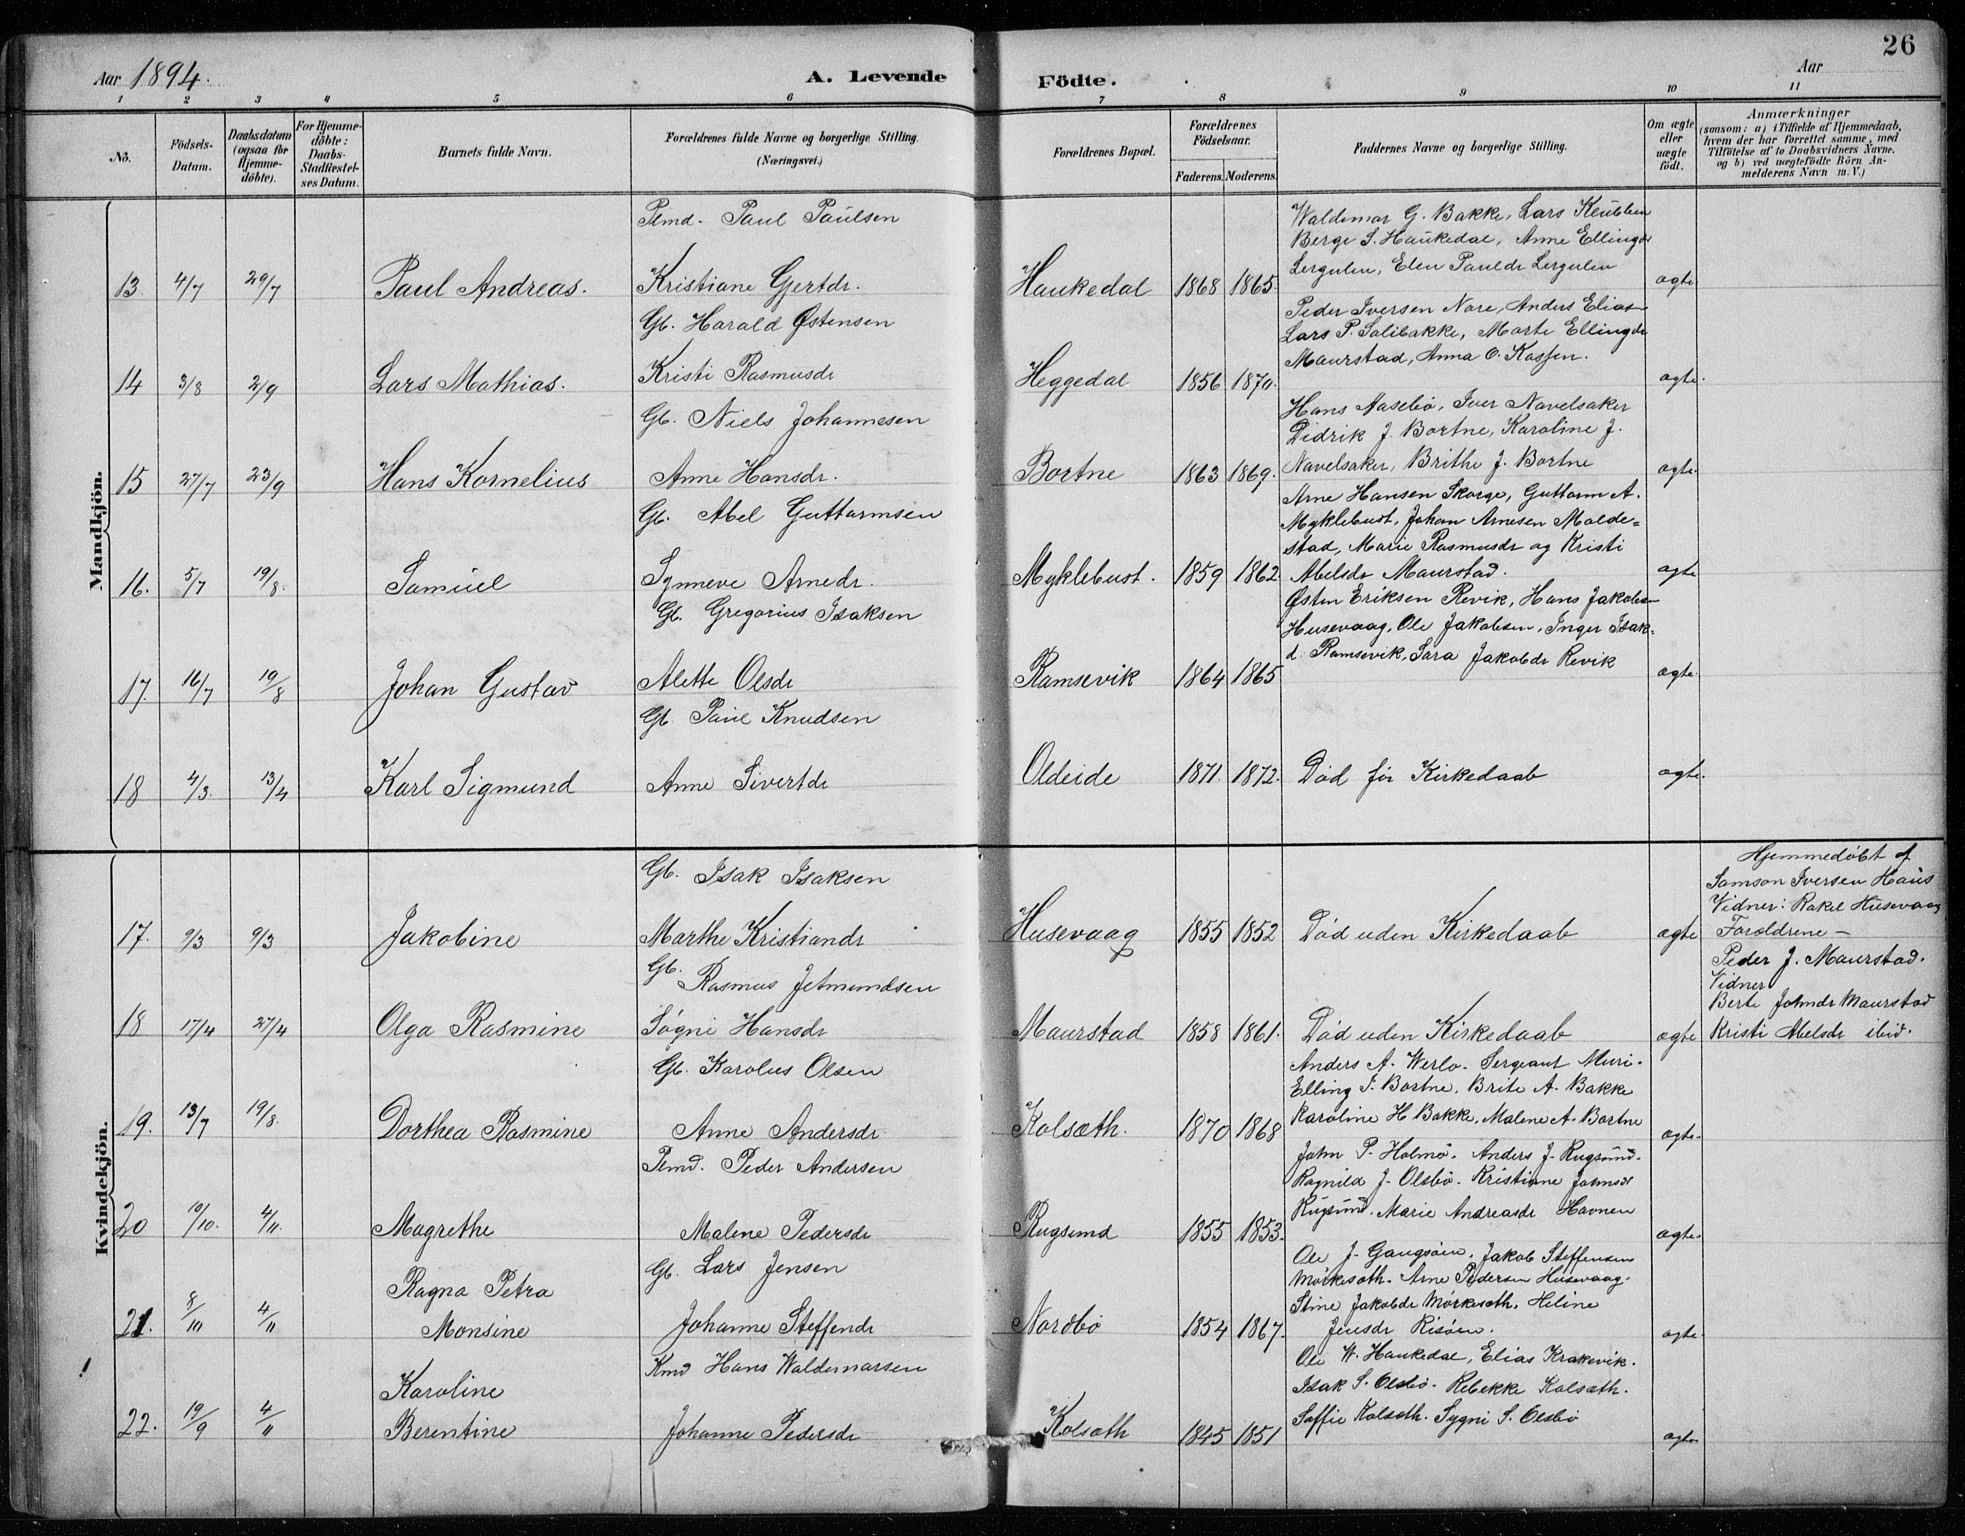 26
Aar 1894.
A. Levende Födte.
Aar
1 2 3 4 5 6 7 8 9 10 11
No.
Födsels-Datum.
Daabsdatum (ogsaa for Hjemme-döbte).
For Hjemme-döbte: Daabs-Stadfæstel-ses Datum.
Barnets fulde Navn.
Forældrenes fulde Navne og borgerlige Stilling. (Næringsvei.)
Forældrenes Bopæl.
Forældrenes Födselsaar.
Faderens. Moderens.
Faddernes Navne og borgerlige Stilling.
Om ægte eller uægte födt.
Anmærkninger
(saasom: a) i Tilfælde af Hjemmedaab,
hvem der har forrettet samme, med
Tilföielse af to Daabsvidners Navne,
og b) ved uægtefödte Börn An-
melderens Navn m. V.)
Mandkjön.
Plmd. Paul Paulsen
Waldemar G. Bakke, Lars
Berge S. Haukedal, Anne Ellingdr
Lergulen, Elen Pauldr Lergulen
13. 4/7 29/7 Paul Andreas. Kristiane Gjertdr. Haukedal 1868 1865. ægte
Gb. Harald Østensen
Peder Iversen Nore, Anders Elias
Lars P. Solibakke, Marte Ellingdr
Maurstad, Anna O.
14 3/8 2/9 Lars Mathias. Kristi Rasmusdr Heggedal 1856 1870. ægte.
Gb. Niels Johannesen
Hans Aasebø, Iver Navelsaker
Didrik J. Bortne, Karoline J.
Navelsaker, Brithe J. Bortne
15 27/7 23/9 Hans Kornelius Anne Hansdr. Bortne 1863 1869. ægte
Gb. Abel Guttormsen
Arne Hansen Skorge, Guttorm A.
Myklebust, Johan Arnesen Molde=
stad, Marie Rasmusdr og Kristi
Abelsdr Maurstad.
16. 5/7 19/8. Samuel Synneve Arnedr. Myklebust. 1859 1862. ægte
Gb. Gregorius Isaksen
Østen Eriksen Revik, Hans Jakobsen
Husevaag, Ole Jakobsen, Inger Isak=
d. Ramsevik, Sara Jakobdr Revik
17. 16/7 19/8 Johan Gustav Alette Olsdr Ramsevik 1864 1865 ægte.
Gb. Paul Knudsen
18 4/3. 13/4 Karl Sigmund Anne Sivertdr Oldeide 1871. 1872. Død før Kirkedaab ægte.
Kvindekjön.
Gb. Isak Isaksen
Hjemmedøbt af
Samson Iversen Haus
Vidner: Rakel Husevaag
Forældrene –
17. 9/3 9/3 Jakobine Marthe Kristiandr Husevaag 1855 1852 Død uden Kirkedaab ægte
Gb. Rasmus Jetmundsen
Peder J. Maurstad.
Vidner
Berte Johndr Maurstad
Kristi Abelsdr ibid.
18 17/4 27/4 Olga Rasmine Søgni Hansdr Maurstad 1858 1861. Død uden Kirkedaab ægte
Gb. Karolus Olsen
Anders A. Werlo. Sergeant Muri.
Elling I. Bortne, Brite A. Bakke
Karoline H Bakke, Malene A. Bortne
19. 13/7 19/8. Dorthea Rasmine Anne Andersdr Kolsæth. 1870 1868 ægte.
Plmd. Peder Andersen
John P. Holmø. Anders J. Rugsund.
Ragnild J. Olsbø. Kristiane Johnsdr
Rugsund. Marie Andreasdr Havnen
20 10/10. 4/11. Magrethe Malene Pedersdr Rugsund 1855 1853. ægte.
Gb. Lars Jensen
Ole J. Gangsøen, Jakob Steffensen
Mörkesæth. Arne Pedersen Husevaag.
Stine Jakobdr Mörkesæth. Heline
Jensdr Risöen.
Ragna Petra
21. 8/10 4/11 Monsine Johanne Steffendr Nordbø 1854 1867. ægte
Kmd Hans Waldemarsen
Ole W. Haukedal, Elias Krakevik.
Isak S. Olsbø. Rebekke Kolsæth.
Soffie Kolsæth. Sygni S. Olsbø
Karoline
22. 19/9 4/11 Berentine Johanne Pedersdr Kolsæth 1845 1851 ægte